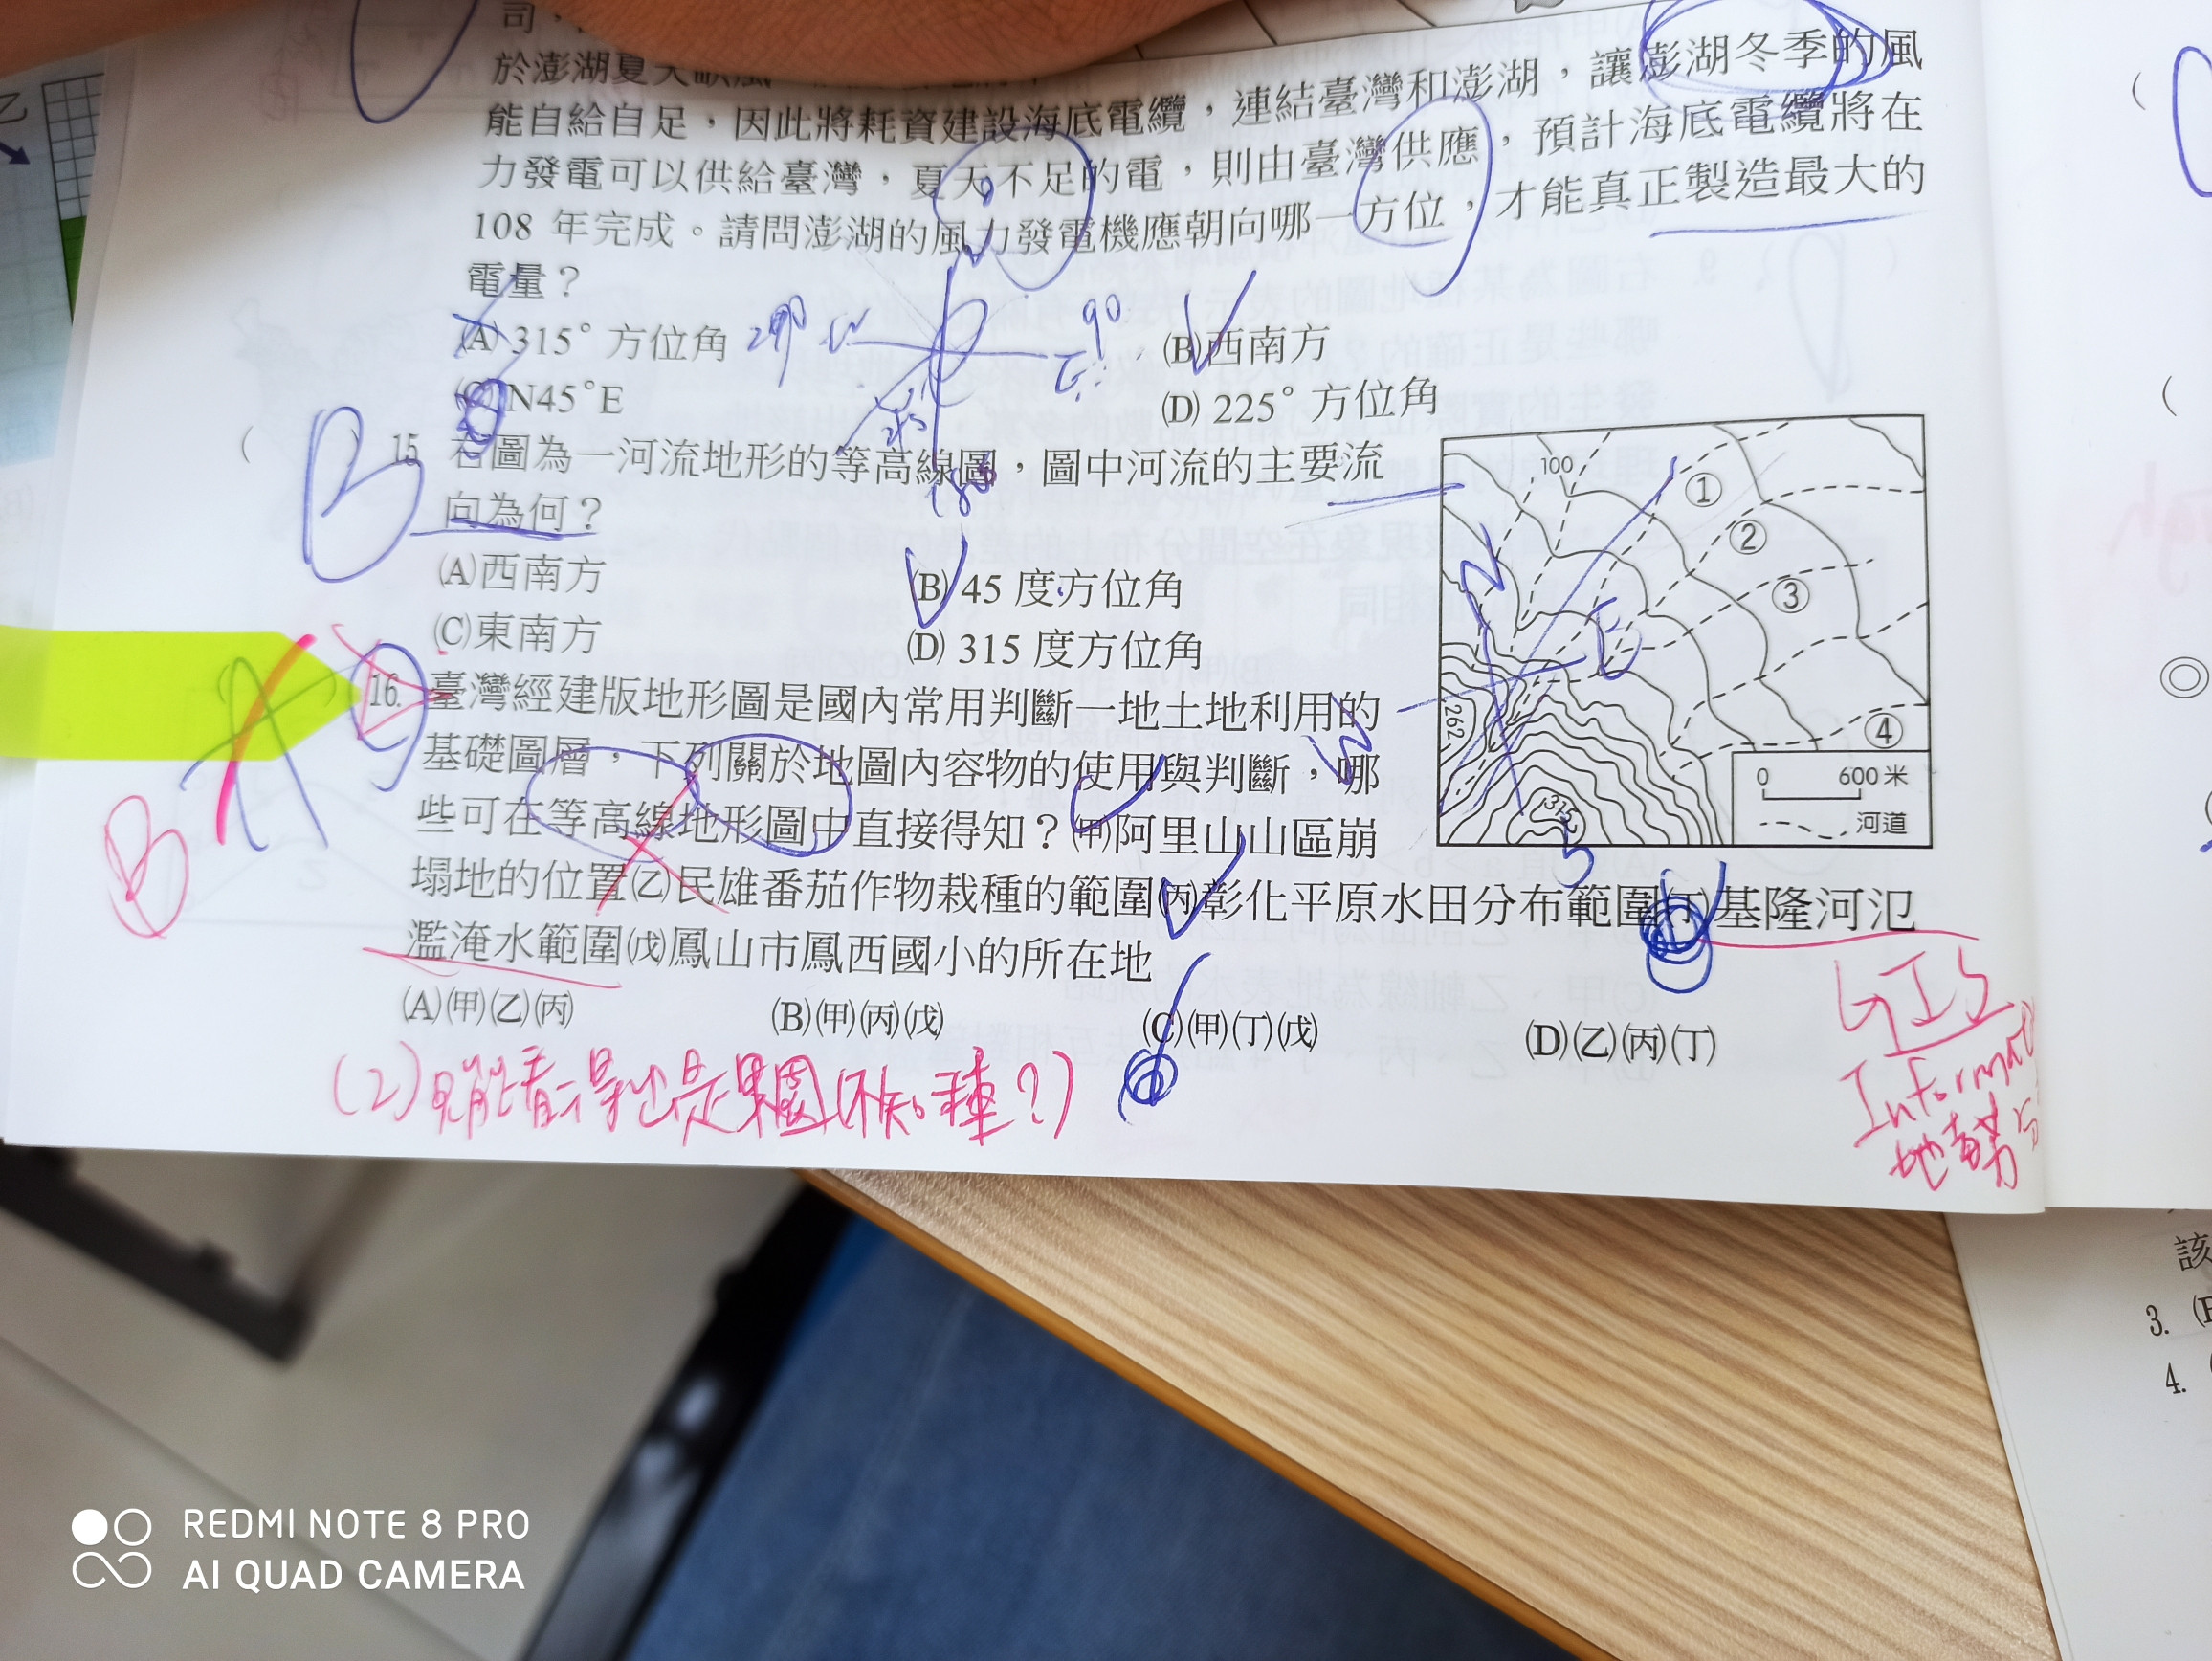 司，
於澎湖夏天
能自給自足，因此將耗資建設海底電纜，連結臺灣和澎湖，讓澎湖冬季的風
力發電可以供給臺灣，夏天不足的電，則由臺灣供應，預計海底電纜將在
108 年完成。請問澎湖的風力發電機應朝向哪一方位，才能真正製造最大的
電量？
(A) 315° 方位角
270 W
90
E
180
(B)西南方
(C) N45°E
(D) 225° 方位角
B
15. 右圖為一河流地形的等高線圖，圖中河流的主要流
向為何？
(A)西南方
(B) 45 度方位角
(C)東南方
(D) 315 度方位角
100
①
②
③
④
262
315
0 600 米
河道
N
E
W
S
A
B
16. 臺灣經建版地形圖是國內常用判斷一地土地利用的
基礎圖層，下列關於地圖內容物的使用與判斷，哪
些可在等高線地形圖中直接得知？(甲)阿里山山區崩
塌地的位置(乙)民雄番茄作物栽種的範圍(丙)彰化平原水田分布範圍(丁)基隆河氾
濫淹水範圍(戊)鳳山市鳳西國小的所在地
(A)(甲)(乙)(丙)
(B)(甲)(丙)(戊)
(C)(甲)(丁)(戊)
(D)(乙)(丙)(丁)
GIS
Informat
該
3.
4.
REDMI NOTE 8 PRO
AI QUAD CAMERA